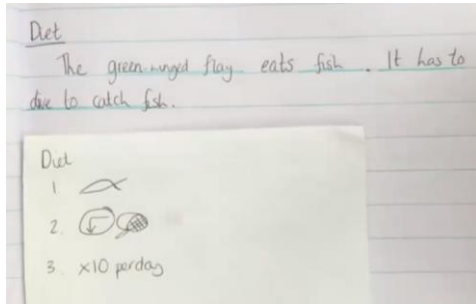 Diet
The green-winged flay eats fish. It has to
dive to catch fish.
Diet
1
2.
3. x10 per day